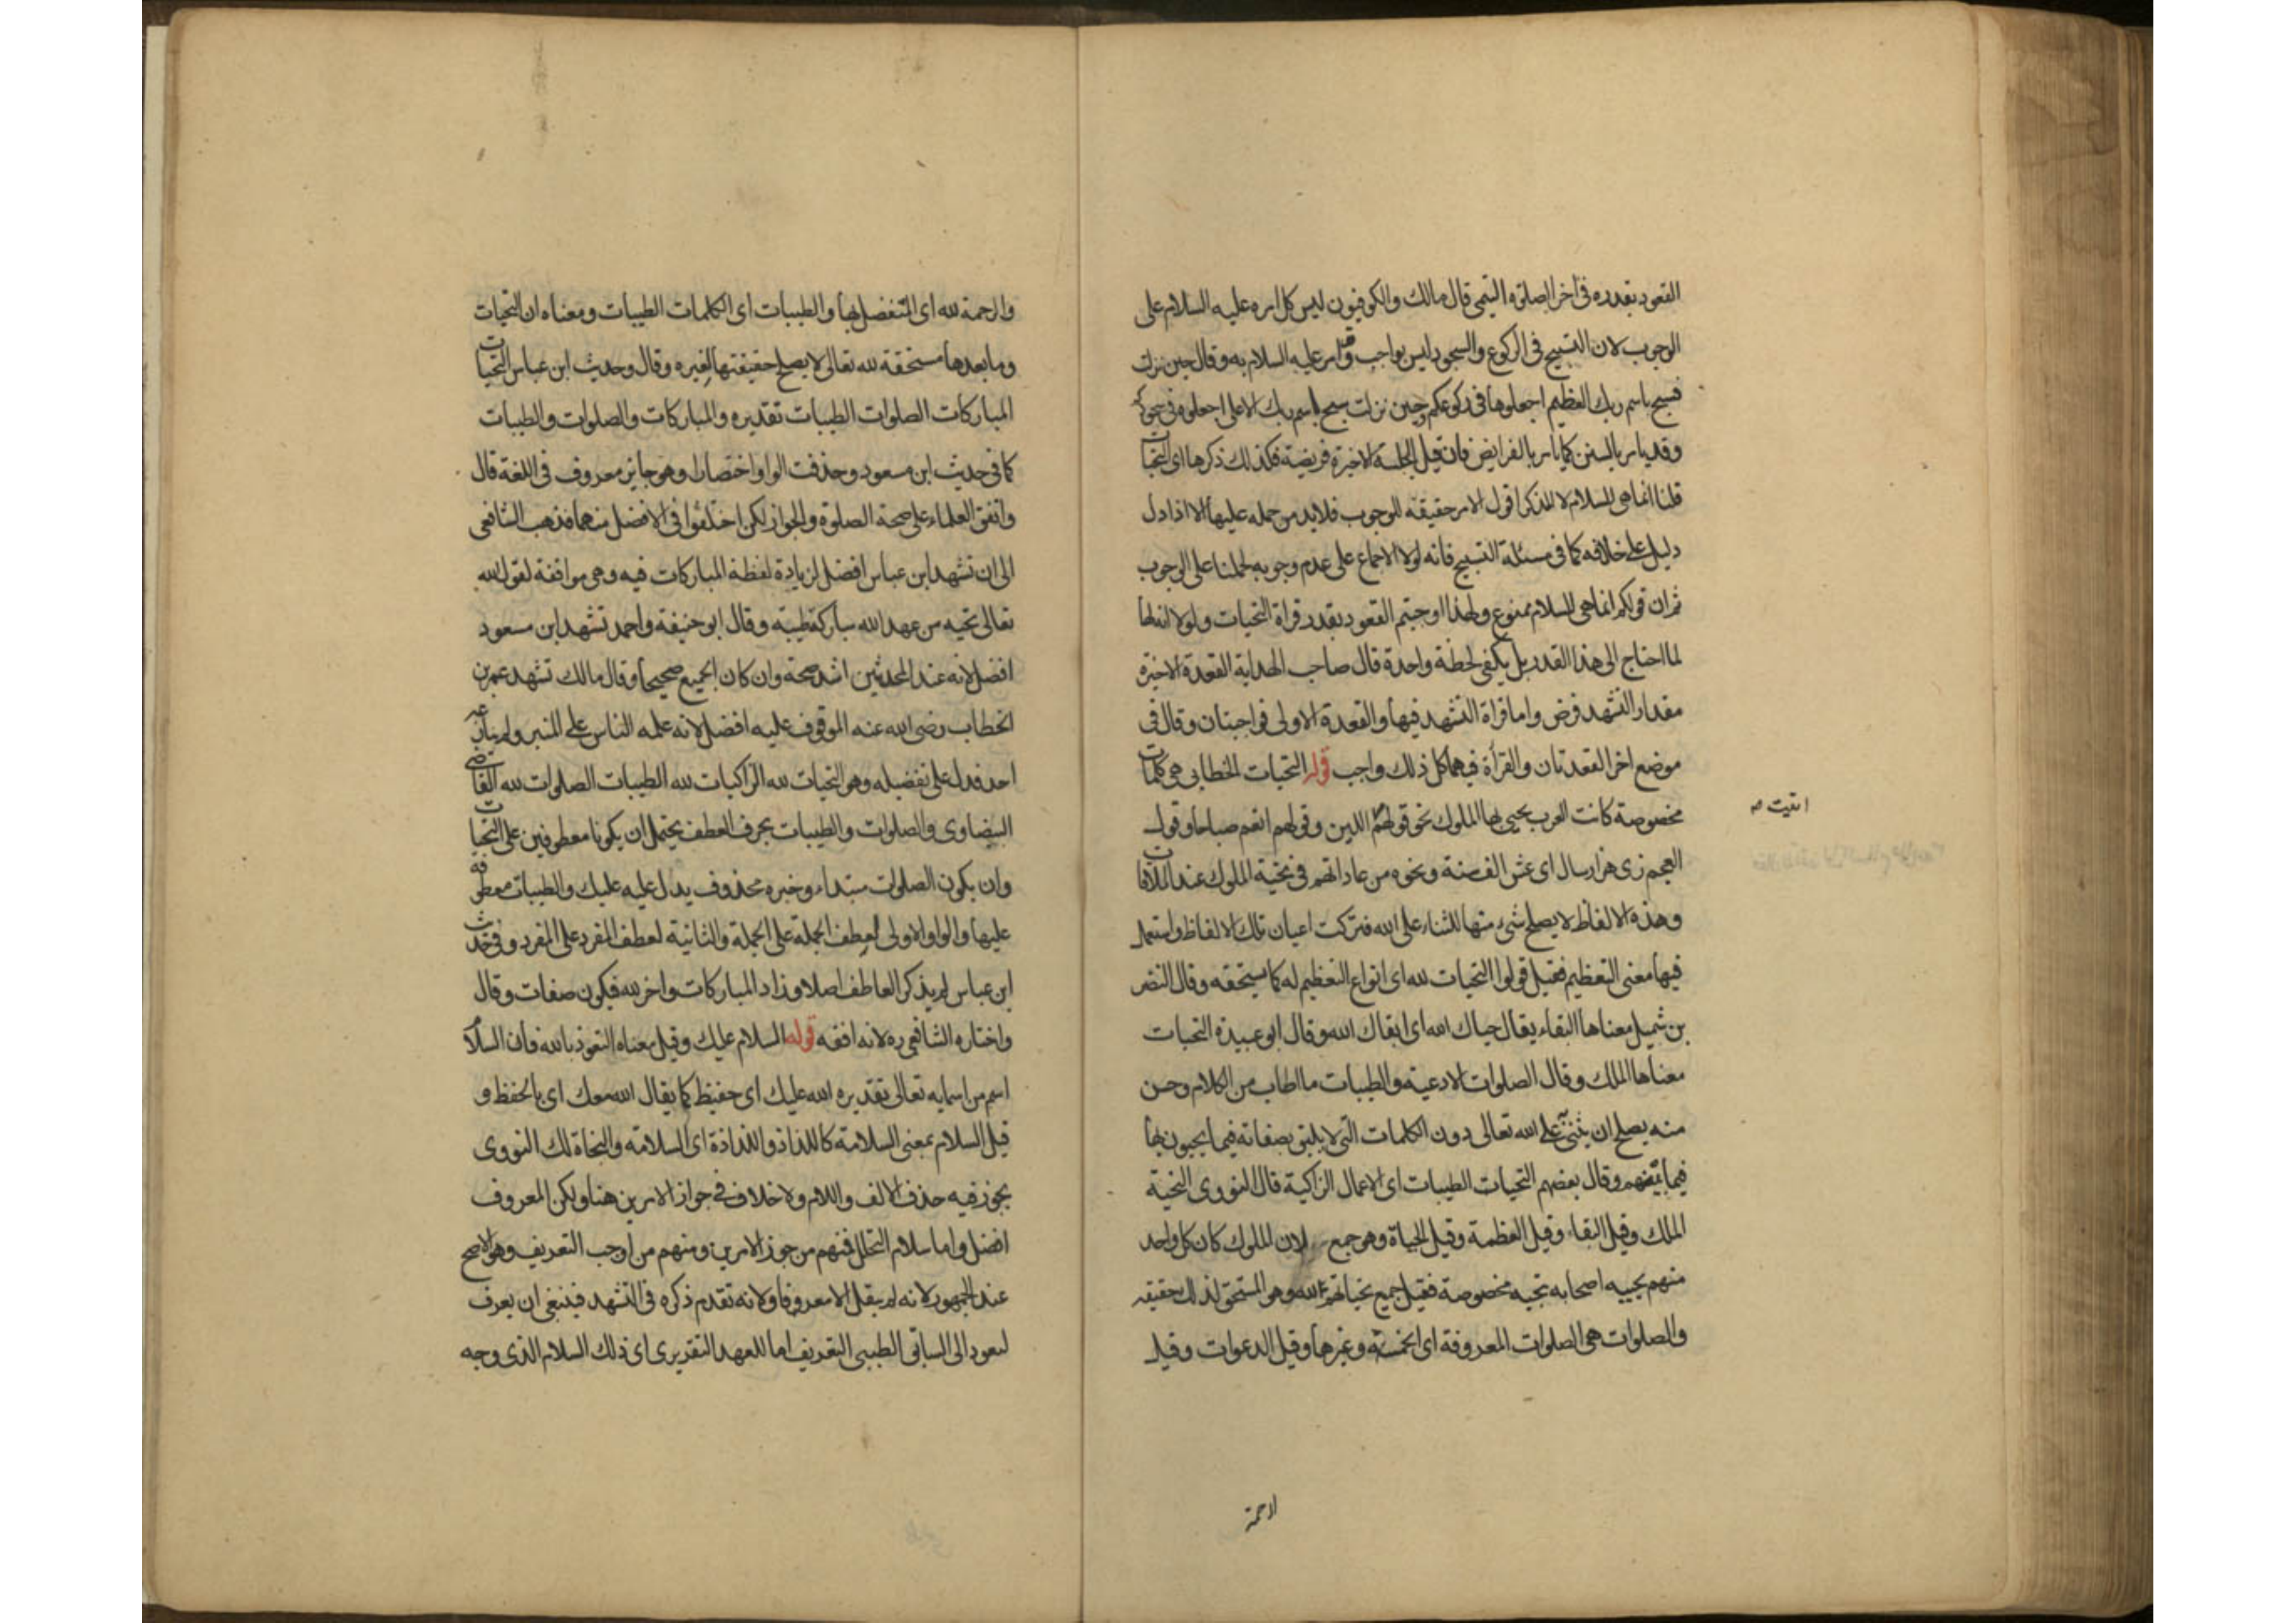 القعود بقدره في اخر الصلوة التيمي قال مالك والكوفيون ليس كل امره عليه السلام على
الوجوب لان التسبيح في الركوع والسجود ليس بواجب وقد امر عليه السلام به وقال حين نزلت
فسبح باسم ربك العظيم اجعلوها في ركوعكم وحين نزلت سبح باسم ربك الاعلى اجعلوه في سجودكم
وقد يامر بالسنن كما يامر بالفرايض فان قيل الجلسة الاخيرة فريضة فكذلك ذكرها اى التحيات
قلنا انما هي للسلام لا للذكر اقول الامر حقيقته للوجوب فلابد من حمله عليها الا اذا دل
دليل على خلافه كما في مسئلة التسبيح فانه لولا الاجماع على عدم وجوبه لحملنا على الوجوب
ثم ان قولكم انما هي للسلام ممنوع ولهذا اوجبتم القعود بقدر قراة التحيات ولولا انه لها
لما احتاج الى هذا القدر بل يكفي لحظة واحدة قال صاحب الهداية القعدة الاخيرة
مقدار التشهد فرض واما قراة التشهد فيها والقعدة الاولى فواجبتان وقال في
موضع اخر القعدتان والقرأة فيهما كل ذلك واجب قوله التحيات الخطابي هي كلمات
مخصوصة كانت العرب يحيى بها الملوك نحو قولهم اللعن وقولهم انعم صباحا وقول
ابيت صه
العجم زى هزار سال اى عش الف سنة ونحوه من عاداتهم في تحية الملوك عند الملاقات
وهذه الالفاظ لا يصلح شيء منها للثناء على الله فتركت اعيان تلك الالفاظ واستعمل
فيها معنى التعظيم فقيل قولوا التحيات لله اى انواع التعظيم له كما يستحقه وقال النضر
بن شميل معناها البقاء يقال حياك الله اى ابقاك الله وقال ابو عبيدة التحيات
معناها الملك وقال الصلوات الادعية والطيبات ما طاب من الكلام وحسن
منه يصلح ان يثنى على الله تعالى دون الكلمات التي لا يليق بصفاته فيما يحيون بها
فيما بينهم وقال بعضهم التحيات الطيبات اى الاعمال الزاكية قال النووى التحية
الملك وقيل البقاء وقيل العظمة وقيل الحياة وهو جمع لان الملوك كان كل واحد
منهم يحييه اصحابه بتحية مخصوصة فقيل جميع تحياتهم لله وهو المستحق لذلك حقيقة
والصلوات هي الصلوات المعروفة اى الخمسة وغيرها وقيل الدعوات وقيل
الرحمة
والرحمة لله اى المتفضل بها والطيبات اى الكلمات الطيبات ومعناه ان التحيات
وما بعدها مستحقة لله تعالى لا يصلح حقيقتها لغيره وقال وحديث ابن عباس التحيات
المباركات الصلوات الطيبات تقديره والمباركات والصلوات والطيبات
كما في حديث ابن مسعود وحذفت الواو اختصارا وهو جايز معروف في اللغة قال
واتفق العلماء على صحة الصلوة والجواز لكن اختلفوا في الافضل منهما فذهب الشافعى
الى ان تشهد ابن عباس افضل لزيادة لفظة المباركات فيه وهى موافقة لقول الله
تعالى تحيه من عند الله مباركة طيبة وقال ابو حنيفة واحمد تشهد ابن مسعود
افضل لانه عند المحدثين اشد صحة وان كان الجميع صحيحا وقال مالك تشهد عمر بن
الخطاب رضى الله عنه الموقوف عليه افضل لانه علمه الناس على المنبر ولم ينازعه
احد فدل على تفضيله وهو التحيات لله الزاكيات لله الطيبات الصلوات لله القاضى
البيضاوى والصلوات والطيبات بحرف العطف يحتمل ان يكونا معطوفين على التحيات
وان يكون الصلوات مبتداء وخبره محذوف يدل عليه عليك والطيبات معطوفة
عليها والواو الاولى لعطف الجملة على الجملة والثانية لعطف المفرد على المفرد وفي حديث
ابن عباس لم يذكر العاطف اصلا وزاد المباركات واخر لله فيكون صفات وقال
واختاره الشافعى ره لانه افقه قوله السلام عليك وقيل معناه التعوذ بالله فان السلام
اسم من اسمايه تعالى تقديره الله عليك اى حفيظ كما يقال الله معك اى بالحفظ و
قيل السلام بمعنى السلامة كاللذاذ واللذاذة اى السلامة والنجاة لك النووى
يجوز فيه حذف الالف واللام ولا خلاف في جواز الامرين هنا ولكن المعروف
افضل واما سلام التحلل فمنهم من جوز الامرين ومنهم من اوجب التعريف وهو الاصح
عند الجمهور لانه لم ينقل الا معروفا ولانه تقدم ذكره في التشهد فينبغى ان يعرف
ليعود الى السابق الطيبي التعريف اما للعهد التقديرى اى ذلك السلام الذى وجه